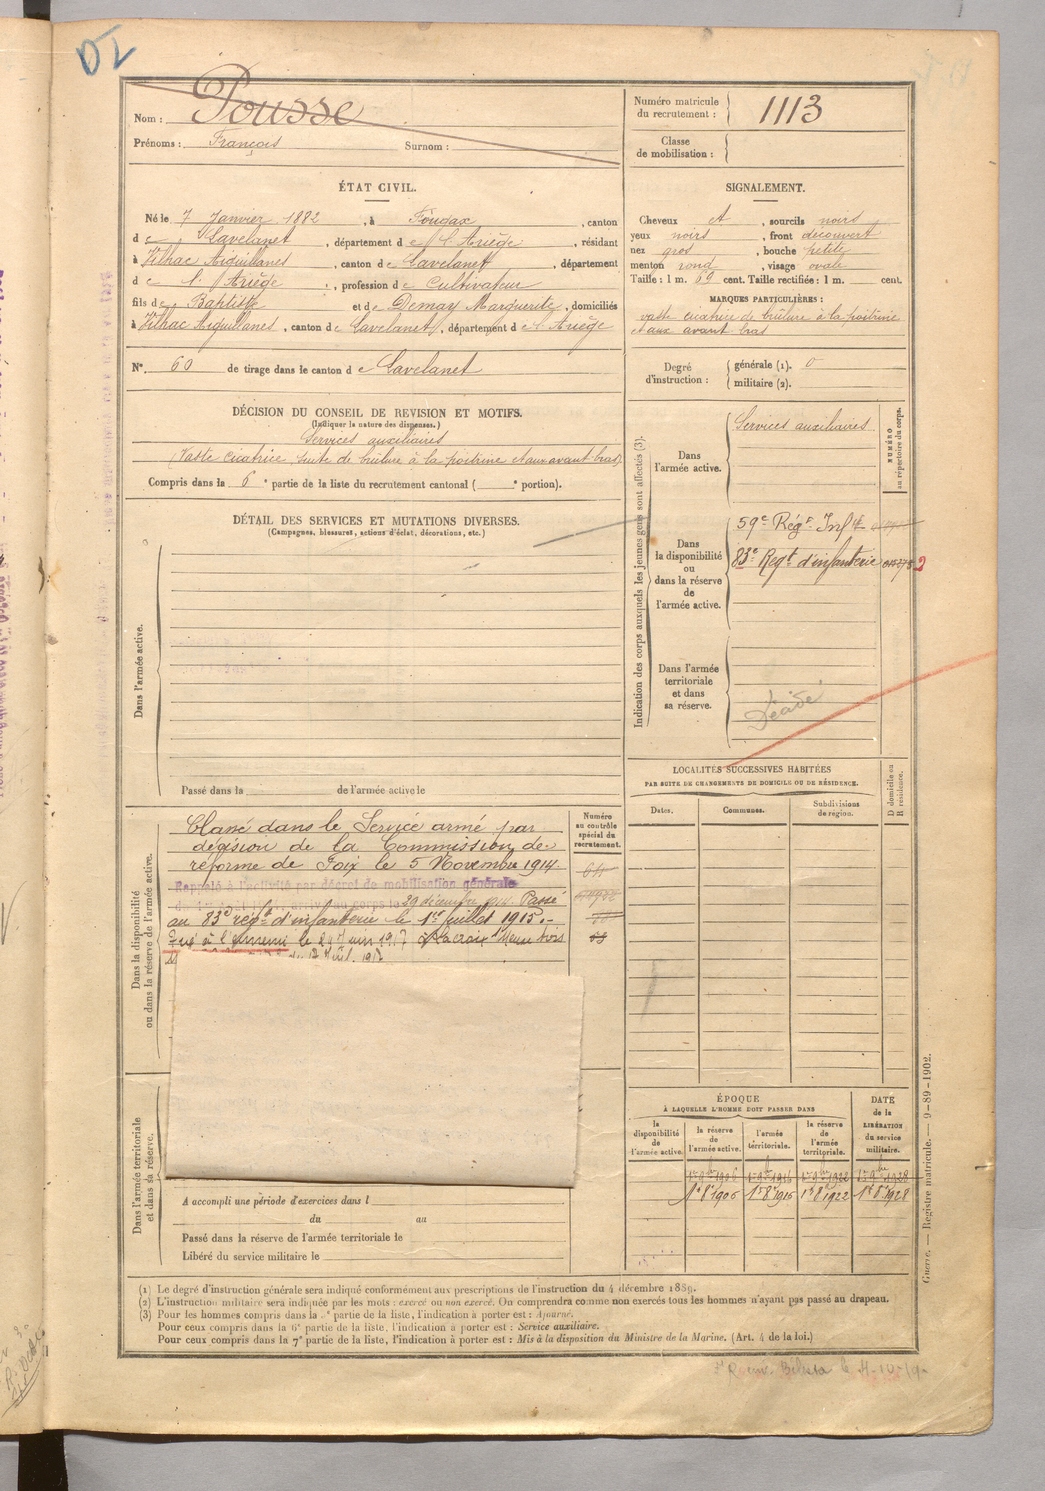 Nom : Pousse
Prénoms : François Surnom :
Numéro matricule
du recrutement : 1113
Classe
de mobilisation :
ÉTAT CIVIL.
Né le 7 Janvier 1882, à Fougax, canton
de Lavelanet, département de l'Ariège, résidant
à Vilhac Aiguillanes, canton de Lavelanet, département
de l'Ariège, profession de Cultivateur
fils de Baptiste et de Demay Marguerite, domiciliés
à Vilhac Aiguillanes, canton de Lavelanet, département de l'Ariège
N° 60 de tirage dans le canton de Lavelanet
SIGNALEMENT.
Cheveux et, sourcils noirs
yeux noirs, front découvert
nez gros, bouche petite
menton rond, visage ovale
Taille : 1 m. 69 cent. Taille rectifiée : 1 m. cent.
MARQUES PARTICULIÈRES :
vaste cicatrice de brûlure à la poitrine
et aux avant bras
Degré
d'instruction :
générale (1). 0
militaire (2).
DÉCISION DU CONSEIL DE REVISION ET MOTIFS.
(Indiquer la nature des dispenses.)
Services auxiliaires
(Vaste cicatrice, suite de brûlure à la poitrine et aux avant-bras)
Compris dans la 6e partie de la liste du recrutement cantonal ( e portion).
DÉTAIL DES SERVICES ET MUTATIONS DIVERSES.
(Campagnes, blessures, actions d'éclat, décorations, etc.)
Dans l'armée active.
Passé dans la de l'armée active le
Indication des corps auxquels les jeunes gens sont affectés (3).
NUMÉRO
au répertoire du corps.
Dans
l'armée active.
Services auxiliaires
Dans
la disponibilité
ou
dans la réserve
de
l'armée active.
59e Régt Inf
83e Regt d'infanterie
Dans l'armée
territoriale
et dans
sa réserve.
LOCALITÉS SUCCESSIVES HABITÉES
PAR SUITE DE CHANGEMENTS DE DOMICILE OU DE RÉSIDENCE.
Dates.
Communes.
Subdivisions
de région.
D domicile ou
R résidence.
Dans la disponibilité
ou dans la réserve de l'armée active.
Numéro
au contrôle
spécial du
recrutement.
Classé dans le Service armé par
décision de la Commission de
réforme de Foix le 5 Novembre 1914.
Rappelé à l'activité par décret de mobilisation générale
arrivé au corps le 29 décembre 1914. Passé
au 83e régt d'infanterie le 1er Juillet 1915.-
Tué à l'ennemi le 29 Juin 1917
Dans l'armée territoriale
et dans sa réserve.
A accompli une période d'exercices dans l
du au
Passé dans la réserve de l'armée territoriale le
Libéré du service militaire le
ÉPOQUE
À LAQUELLE L'HOMME DOIT PASSER DANS
DATE
de la
LIBÉRATION
du service
militaire.
la
disponibilité
de
l'armée active.
la réserve
de
l'armée active.
l'armée
territoriale.
la réserve
de
l'armée
territoriale.
1er 9bre 1906 1er 9bre 1916 1er 9bre 1922 1er 9bre 1928
1er 8bre 1906 1er 8bre 1916 1er 8bre 1922 1er 8bre 1928
(1) Le degré d'instruction générale sera indiqué conformément aux prescriptions de l'instruction du 4 décembre 1889.
(2) L'instruction militaire sera indiquée par les mots : exercé ou non exercé. On comprendra comme non exercés tous les hommes n'ayant pas passé au drapeau.
(3) Pour les hommes compris dans la partie de la liste, l'indication à porter est : Ajourné.
Pour ceux compris dans la 6e partie de la liste, l'indication à porter est : Service auxiliaire.
Pour ceux compris dans la 7e partie de la liste, l'indication à porter est : Mis à la disposition du Ministre de la Marine. (Art. 4 de la loi.)
Guerre. — Registre matricule. — 9-89-1902.